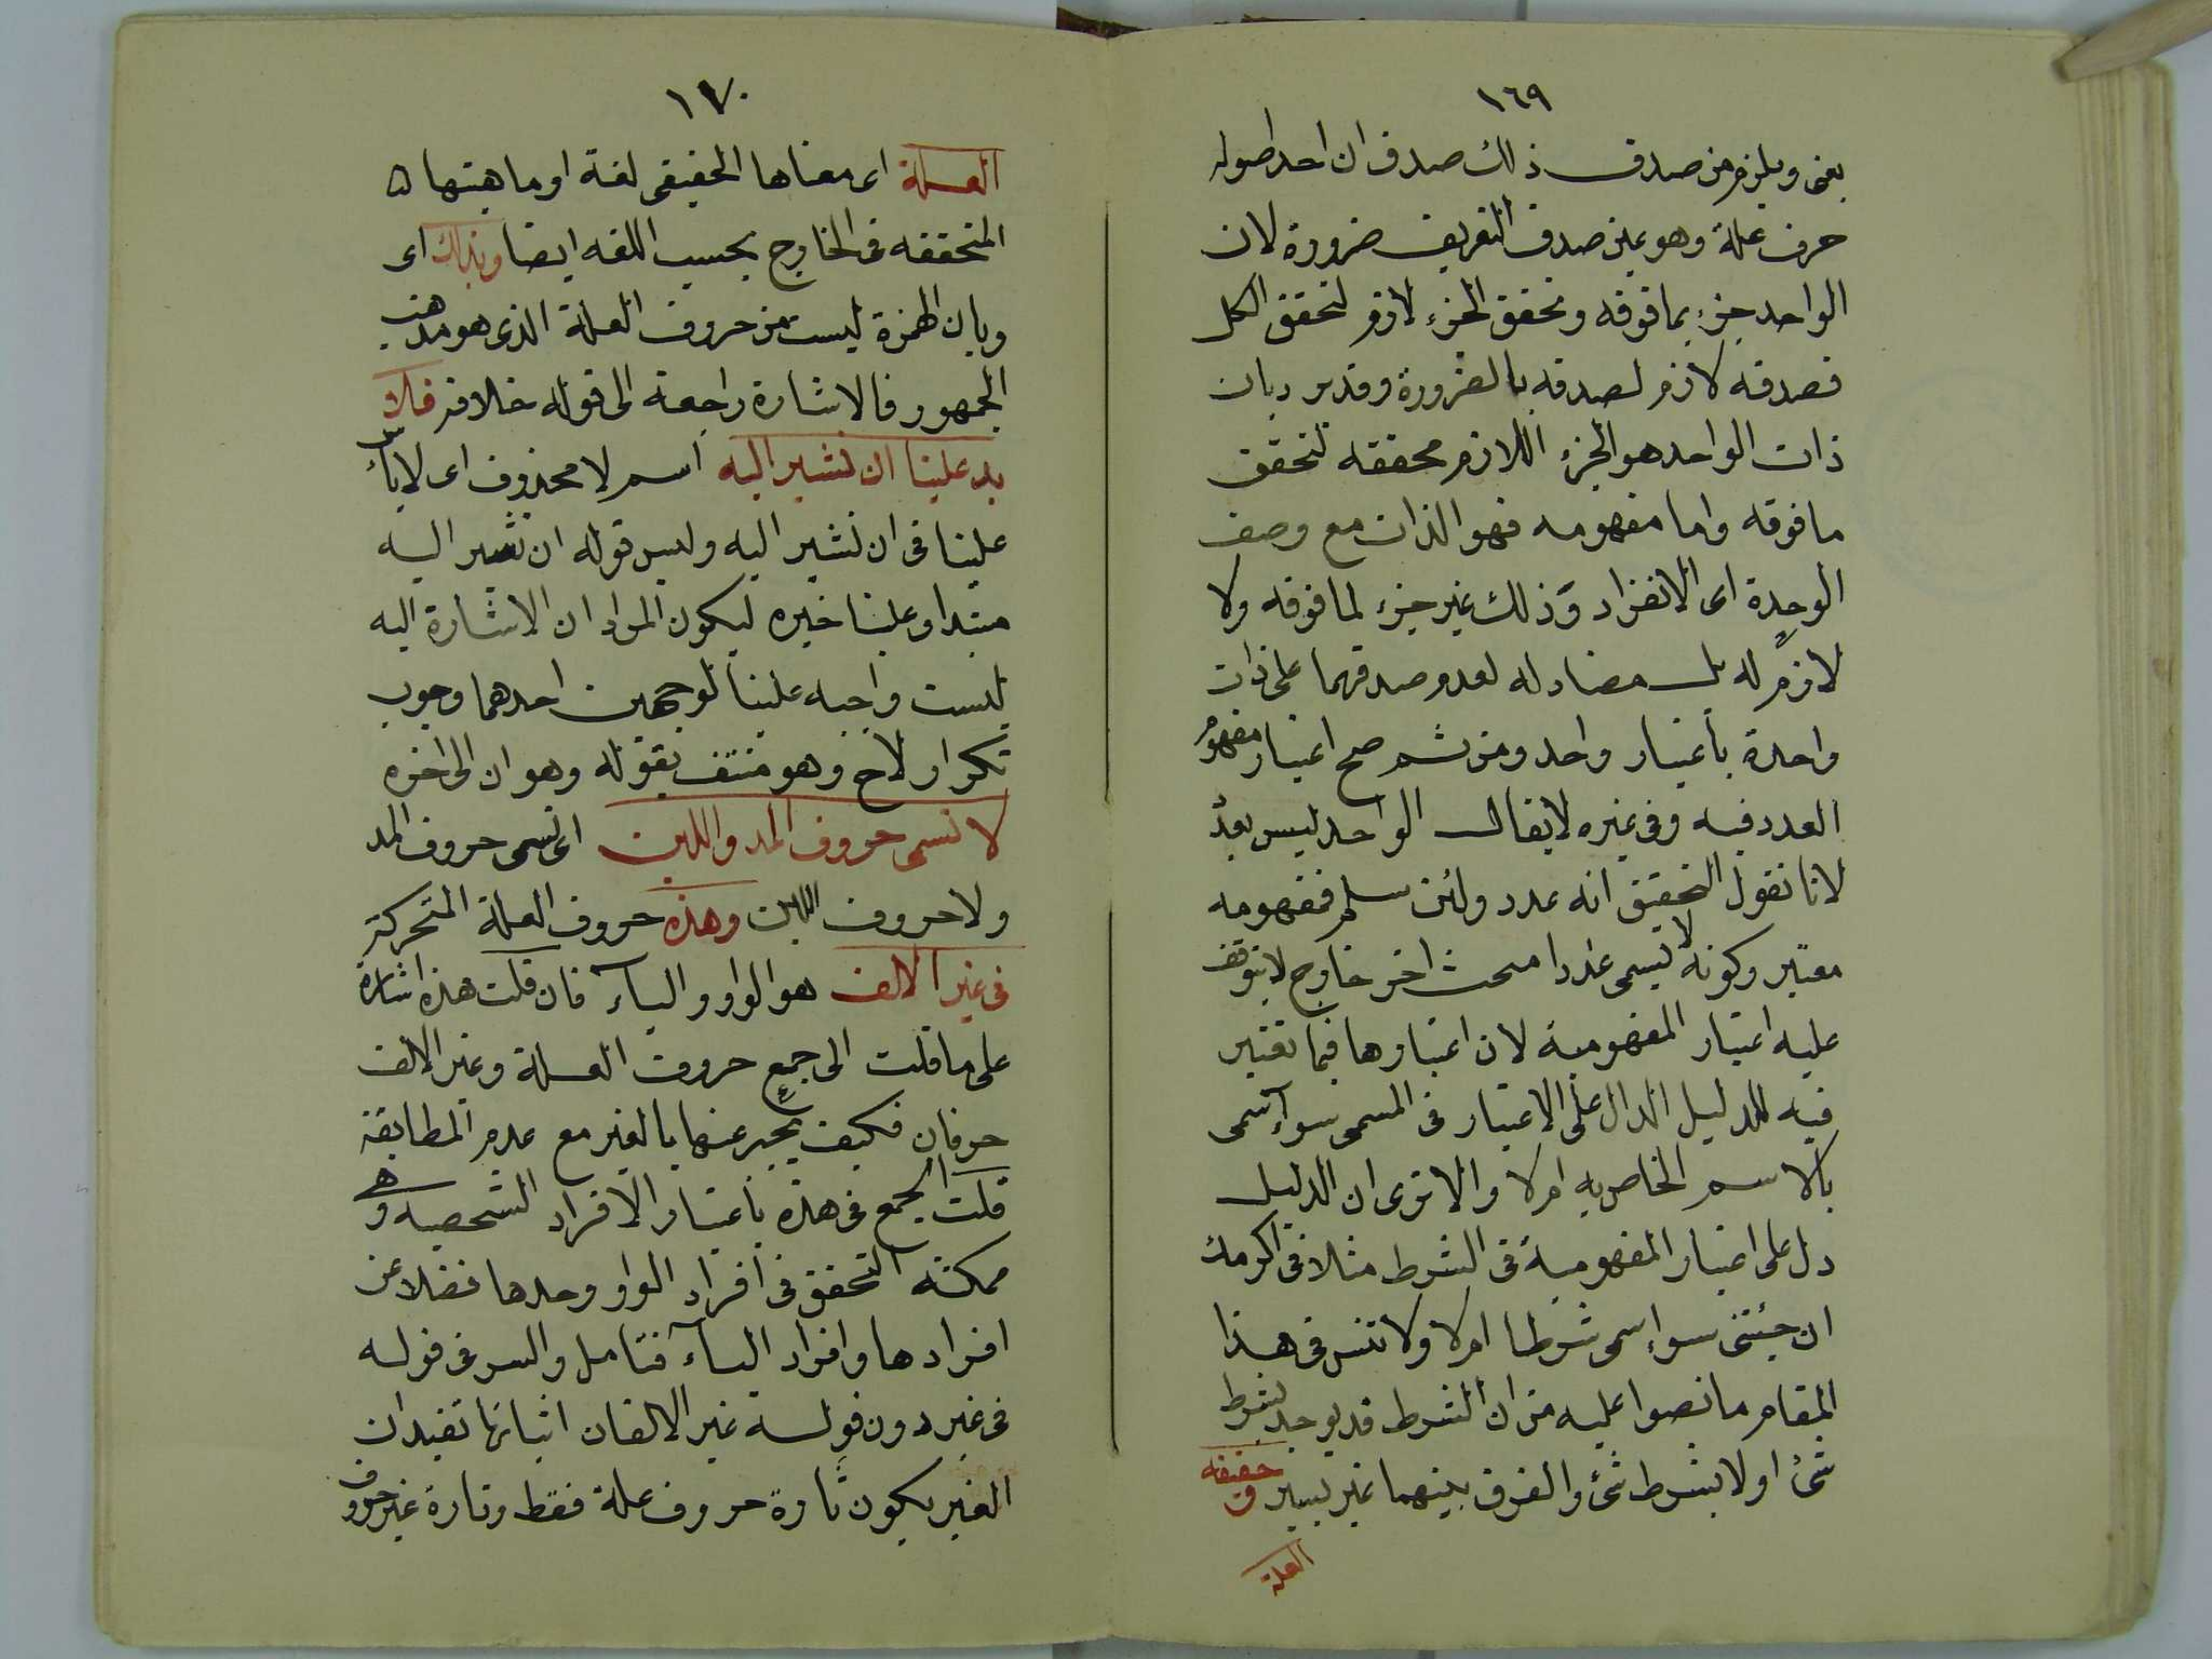 ١٦٩
يعنى ويلزم من صدق ذلك صدق ان احد اصوله
حرف علة وهو عين صدق التعريف ضرورة لان
الواحد جزء بما فوقه وتحقق الجزء لازم لتحقق الكل
فصدقه لازم لصدقه بالضرورة وقد يرد بان
ذات الواحد هو الجزء اللازم محققه لتحقق
ما فوقه واما مفهومه فهو الذات مع وصف
الوحدة اى الانفراد وذلك غير جزء لما فوقه ولا
لازم له بل مضاد له لعدم صدقهما على ذات
واحدة باعتبار واحد ومن ثم صح اعتبار مفهوم
العدد فيه وفى غيره لا يقال الواحد ليس بعدد
لانا نقول التحقيق انه عدد ولئن سلم فمفهومه
معتبر وكونه لا يسمى عددا مبحث اخر خارج لا يتوقف
عليه اعتبار المفهومية لان اعتبارها فيما تعتبر
فيه للدليل الدال على الاعتبار فى المسمى سواء سمى
بالاسم الخاص به ام لا والا ترى ان الدليل
دل على اعتبار المفهومية فى الشرط مثلا فى اكرمك
ان جئتنى سواء سمى شرطا ام لا ولا تنس فى هذا
المقام ما نصوا عليه من ان الشرط قد يوجد بشرط
شئ او لا بشرط شئ والفرق بينهما غير يسير ق حقيقه
العلة
١٧٠
العلة اى معناها الحقيقى لغة او ماهيتها
المتحققه فى الخارج بحسب اللغه ايضا وبذلك اى
وبان الهمزة ليست من حروف العلة الذى هو مذهب
الجمهور فالاشارة راجعة الى قوله خلافه فلا
بد علينا ان نشير اليه اسم لا محذوف اى لا بأس
علينا فى ان نشير اليه وليس قوله ان نشير اليه
مبتدا وعلينا خبره ليكون المراد ان الاشارة اليه
ليست واجبه علينا لوجهين احدهما وجوب
تكرار لا ح وهو منتف بقوله وهو ان الى اخره
لا تسمى حروف المد واللين اى تسمى حروف المد
ولا حروف اللين وهذه حروف العلة المتحركة
فى غير الالف هو الواو والياء فان قلت هذه اشارة
على ما قلت الى جمع حروف العلة وغير الالف
حرفان فكيف يخبر عنها بالغير مع عدم المطابقة
قلت الجمع فى هذه باعتبار الافراد الشخصيه وهى
ممكنة التحقق فى افراد الواو وحدها فضلا عن
افرادها وافراد الياء فتامل والسر فى قوله
فى غير دون قوله غير الالف ان اثباتها تفيد ان
الغير يكون تارة حروف علة فقط وتارة غير حروف